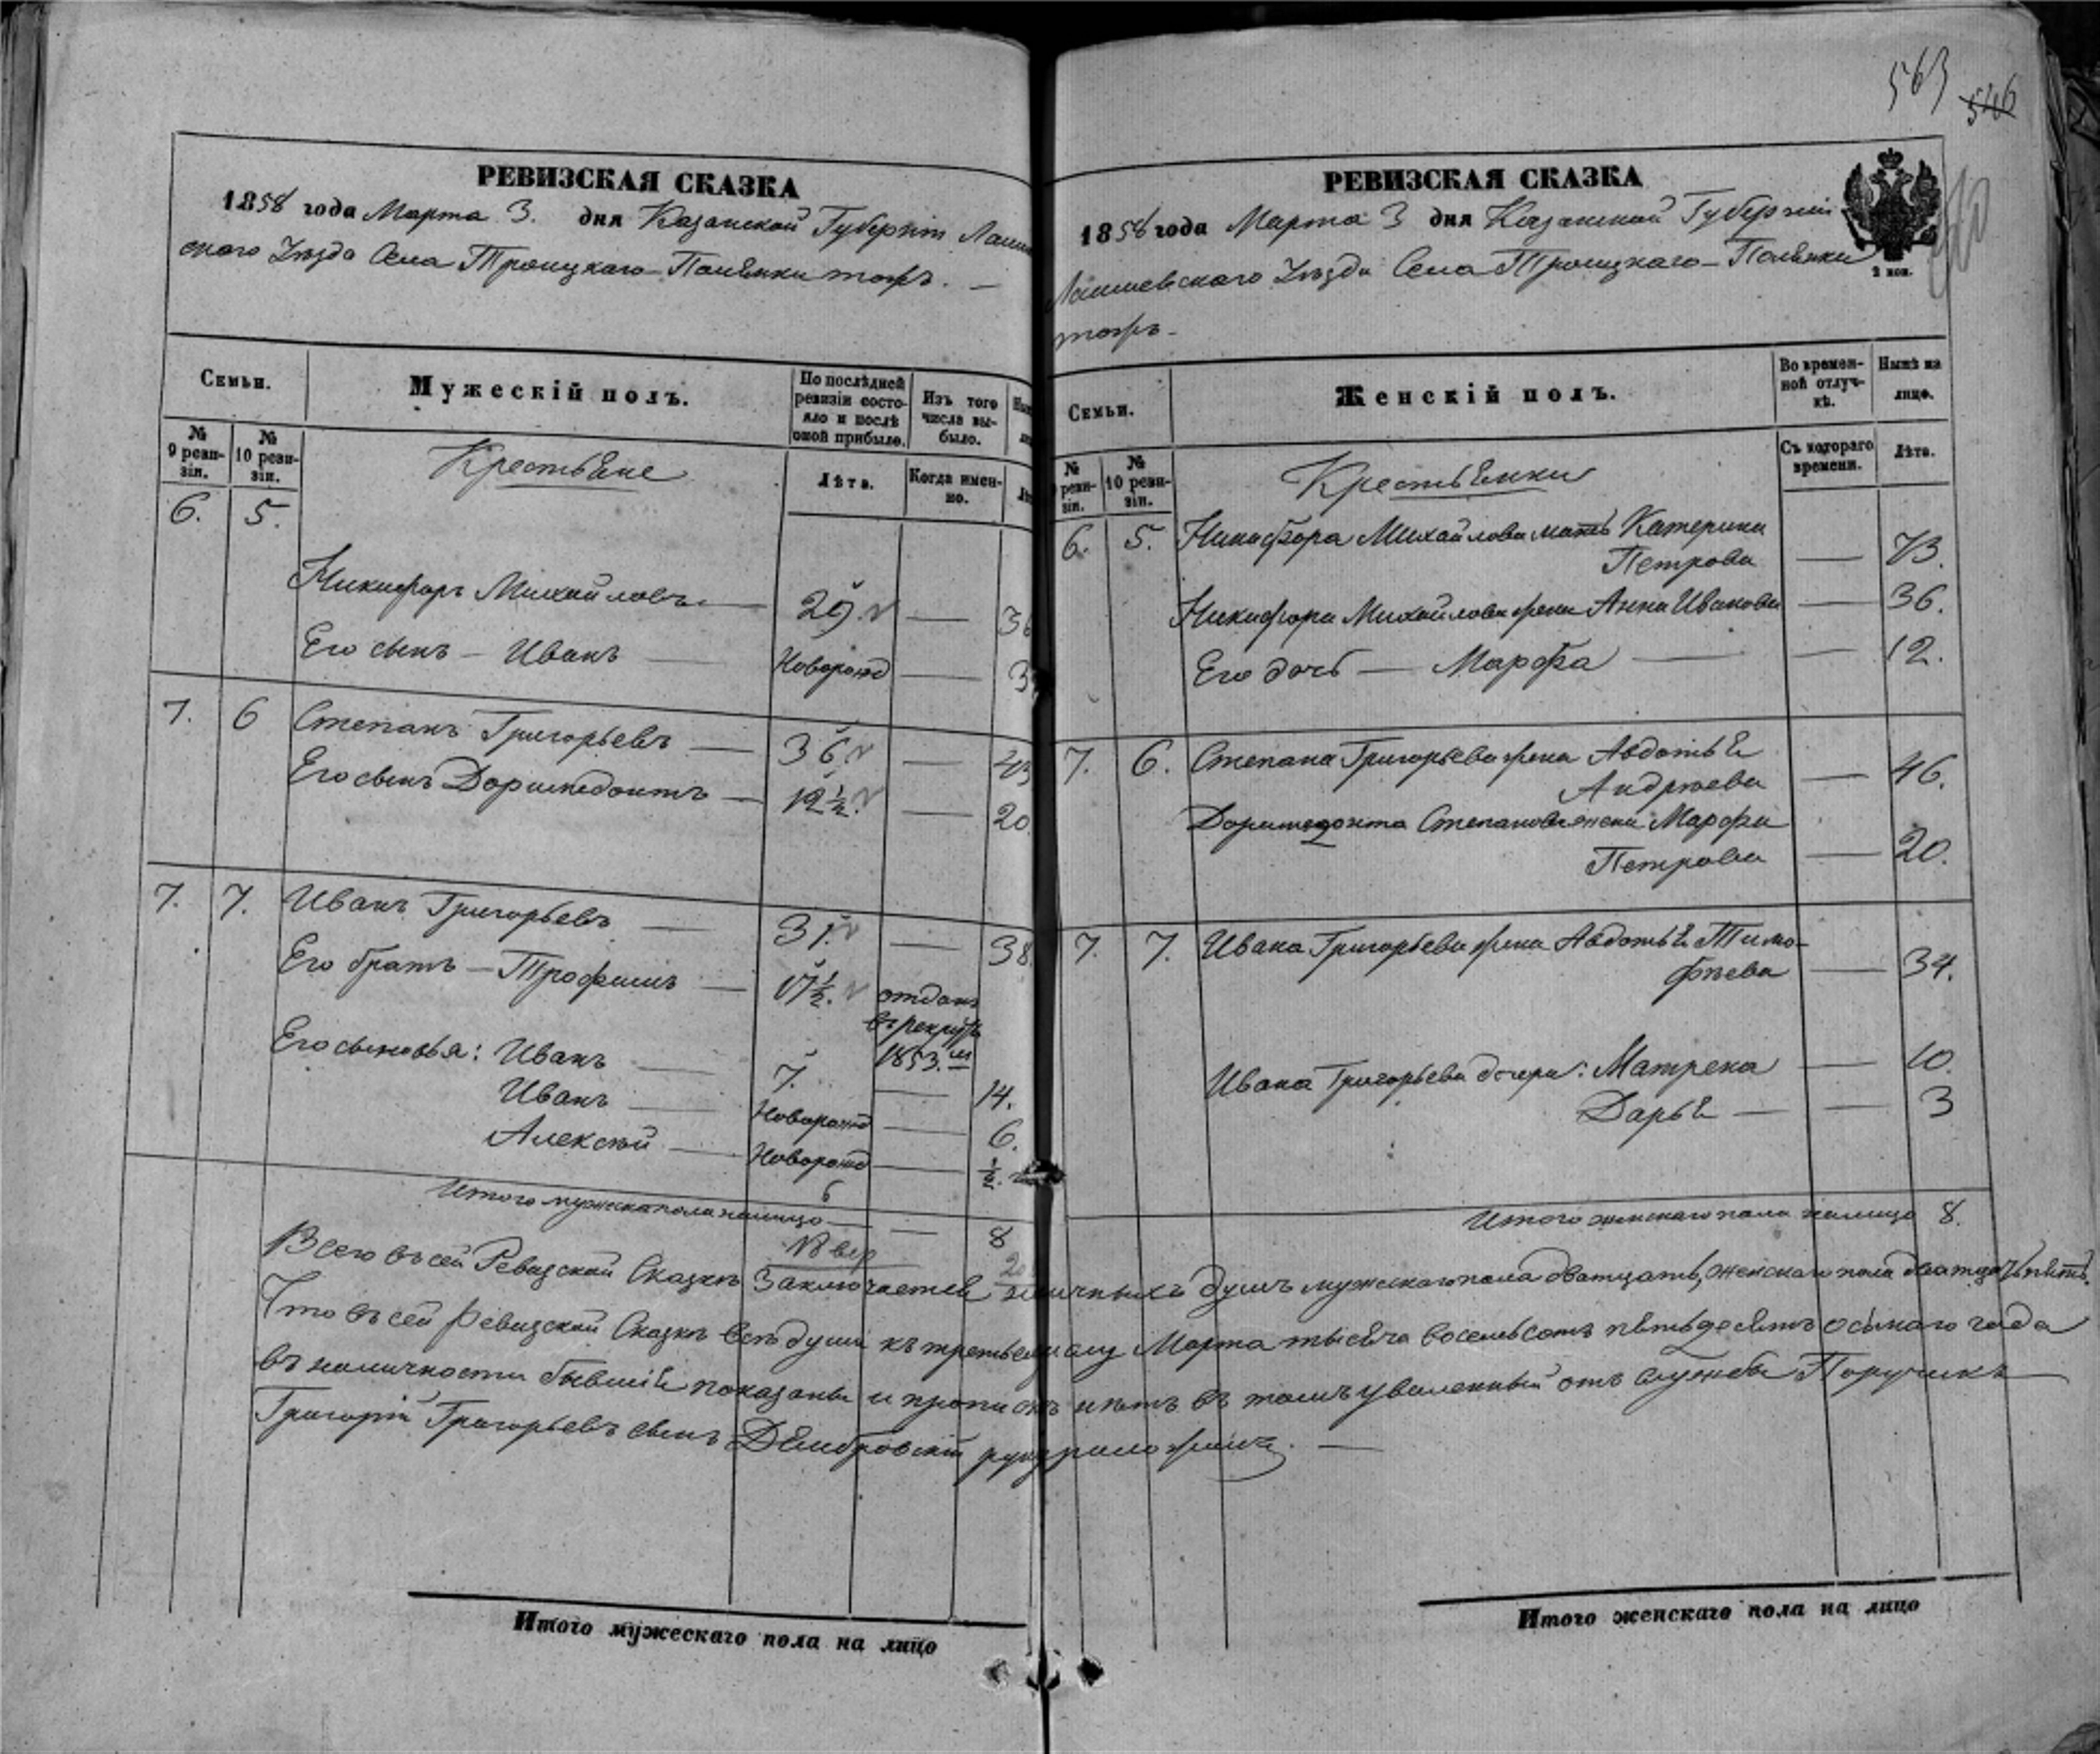 563 546
РЕВИЗСКАЯ СКАЗКА
1858 года Марта 3. дня Казанской Губерніи Лаишев
скаго Уѣзда Села Троицкаго-Полянки тожъ. —
Семьи.
Мужескій полъ.
По послѣдней ревизіи состояло и послѣ оной прибыло.
Изъ того числа выбыло.
№ 9 ревизіи.
№ 10 ревизіи.
Крестьяне
Лѣта.
Когда именно.
6. 5.
Никифоръ Михайловъ — 29. — 36
Его сынъ — Иванъ — Новорожд — 3
7. 6 Степанъ Григорьевъ — 36. — 43
Его сынъ Доримедонтъ — 12½. — 20.
7. 7. Иванъ Григорьевъ — 31. — 38.
Его братъ — Трофимъ — 17½. отданъ
въ рекруты
1853.
Его сыновья: Иванъ — 7. — 14.
Иванъ — Новорожд — 6.
Алексѣй — Новорожд — ½.
6
Итого мужска пола налицо — — 8
20
РЕВИЗСКАЯ СКАЗКА
1858 года Марта 3 дня Казанской Губерніи
Лаишевскаго Уѣзда Села Троицкаго-Полянки
тожъ-
2 коп.
Семьи.
Женскій полъ.
Во временной отлучкѣ.
Нынѣ на лицо.
№ 9 ревизіи.
№ 10 ревизіи.
Крестьянки
Съ котораго времени.
Лѣта.
6. 5. Никифора Михайлова мать Катерина
Петрова — 73.
Никифора Михайлова жена Анна Иванова — 36.
Его дочь — Марфа — — 12.
7. 6. Степана Григорьева жена Авдотья
Андрѣева — 46.
Доримедонта Степанова жена Марфа
Петрова — 20.
7. 7. Ивана Григорьева жена Авдотья Тимо-
фѣева — 34.
Ивана Григорьева дочери: Матрена — 10.
Дарья — — 3
Итого женскаго пола налицо 8.
Всего въ сей Ревизской Сказкѣ Заключается наличныхъ душъ мужскаго пола дватцать, женскаго пола дватцать пять.
Что въ сей Ревизской Сказкѣ всѣ души къ третьему Марта тысяча восемьсотъ пятьдесятъ осьмаго года
въ наличности бывшія показаны и прописнъ нѣтъ въ томъ уваленный отъ службы Поручикъ
Григорій Григорьевъ сынъ Дембровскій руку приложилъ. —
Итого мужескаго пола на лицо
Итого женскаго пола на лицо